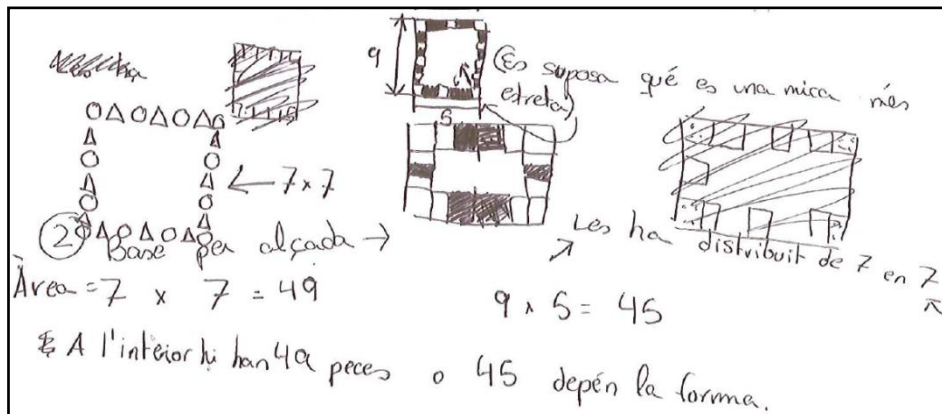 9
(Es suposa què es una mica més
estreta)
5
← 7 x 7
② Base per alçada →
Les ha distribuit de 7 en 7
Àrea = 7 x 7 = 49
9 x 5 = 45
A l'interior hi han 49 peces o 45 depén la forma.